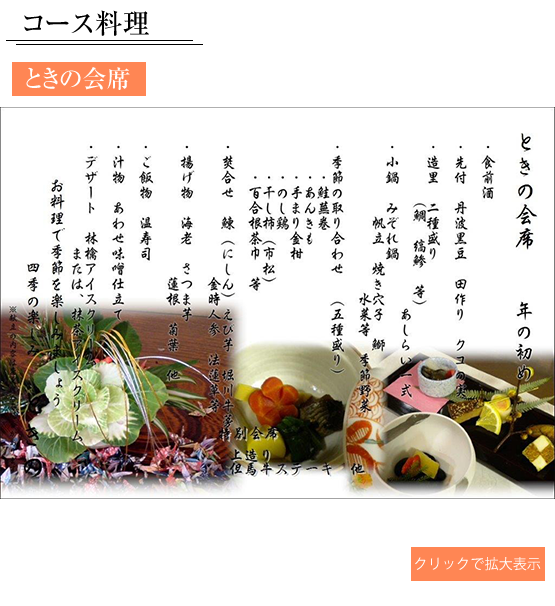 コース料理
ときの会席
ときの会席 年の初め
・食前酒
・先付 丹波黒豆 田作り クコの実
・造里 二種盛り あしらい一式
(鯛 縞鯵 等)
・小鍋 みぞれ鍋 焼き穴子 鰤 季節野菜
帆立 水菜等
・季節の取り合わせ (五種盛り)
・鮭蕪巻
・あんきも
・手まり金柑
・のし鶏
・干し柿(市松)
・百合根茶巾 等
・焚合せ 鰊(にしん)えび芋 堀川牛蒡
金時人参 法蓮草等
・揚げ物 海老 さつま芋 菊葉 他
蓮根
・ご飯物 温寿司
・汁物 あわせ味噌仕立て
・デザート 林檎アイスクリーム
または、抹茶アイスクリーム
お料理で季節を楽しみましょう
四季の楽
別会席
上造り
但馬牛ステーキ 他
クリックで拡大表示